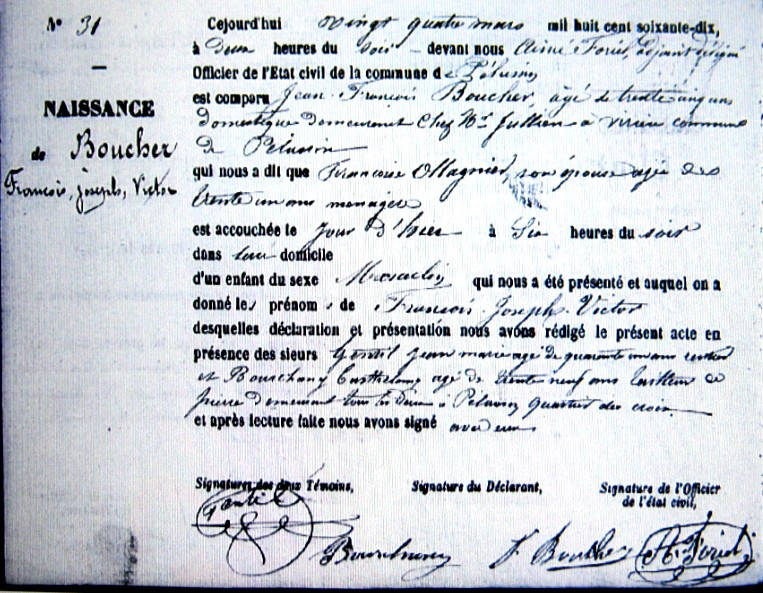 N° 31
NAISSANCE
de Boucher
François, Joseph, Victor
Cejourd'hui vingt quatre mars mil huit cent soixante-dix,
à deux heures du soir devant nous Aimé Foriel, adjoint délégué
Officier de l'Etat civil de la commune de Pélussin
est comparu Jean François Boucher, âgé de trente cinq ans
domestique demeurant chez Mr Jullien à commune
de Pélussin
qui nous a dit que Françoise Ollagnier, son épouse agée de
trente un ans ménagère
est accouchée le jour d'hier à six heures du soir
dans leur domicile
d'un enfant du sexe Masculin qui nous a été présenté et auquel on a
donné les prénoms de François Joseph Victor
desquelles déclaration et présentation nous avons rédigé le présent acte en
présence des sieurs Gentil Jean marie agé de quarante un ans rentier
et Bourchany Barthélemy agé de trente neuf ans tailleur de
pierre demeurant tous les deux à Pélussin quartier des croix
et après lecture faite nous avons signé avec eux
Signatures des deux Témoins,
Signature du Déclarant,
Signature de l'Officier
de l'état civil,
Gentil
Bourchany
F Boucher
A. Foriel